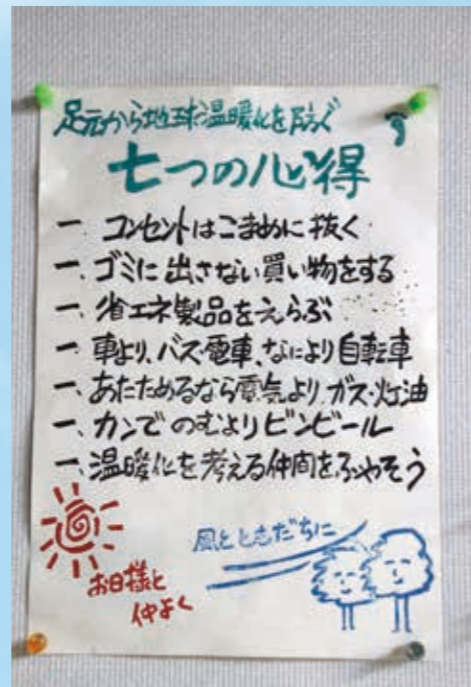 足元から地球温暖化を防ぐ
七つの心得
一、コンセントはこまめに抜く
一、ゴミに出さない買い物をする
一、省エネ製品をえらぶ
一、車より、バス・電車、なにより自転車
一、あたためるなら電気よりガス・灯油
一、カンでのむよりビンビール
一、温暖化を考える仲間をふやそう
風とともだちに
お日様と
仲よく